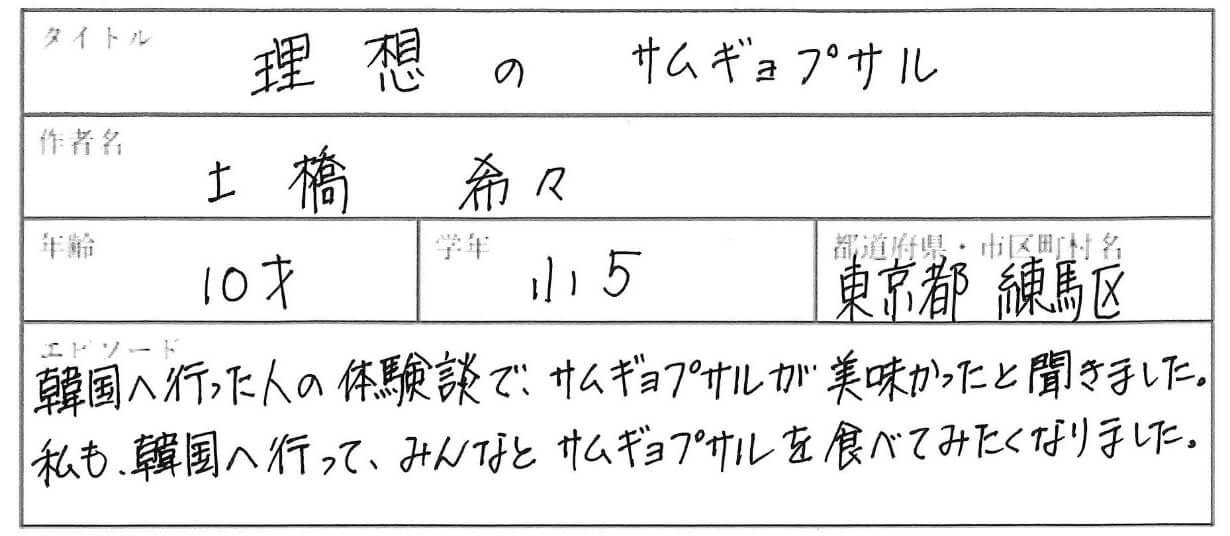 タイトル
理想の サムギョプサル
作者名
土橋 希々
年齢
10才
学年
小5
都道府県・市区町村名
東京都 練馬区
エピソード
韓国へ行った人の体験談で、サムギョプサルが美味かったと聞きました。
私も、韓国へ行って、みんなと サムギョプサルを食べてみたくなりました。